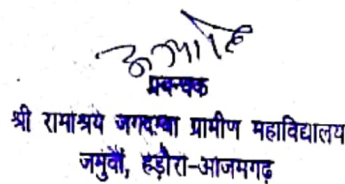 प्रबन्धक
श्री रामाश्रय जगदम्बा ग्रामीण महाविद्यालय
जमुवाँ, हड़ौरा-आजमगढ़